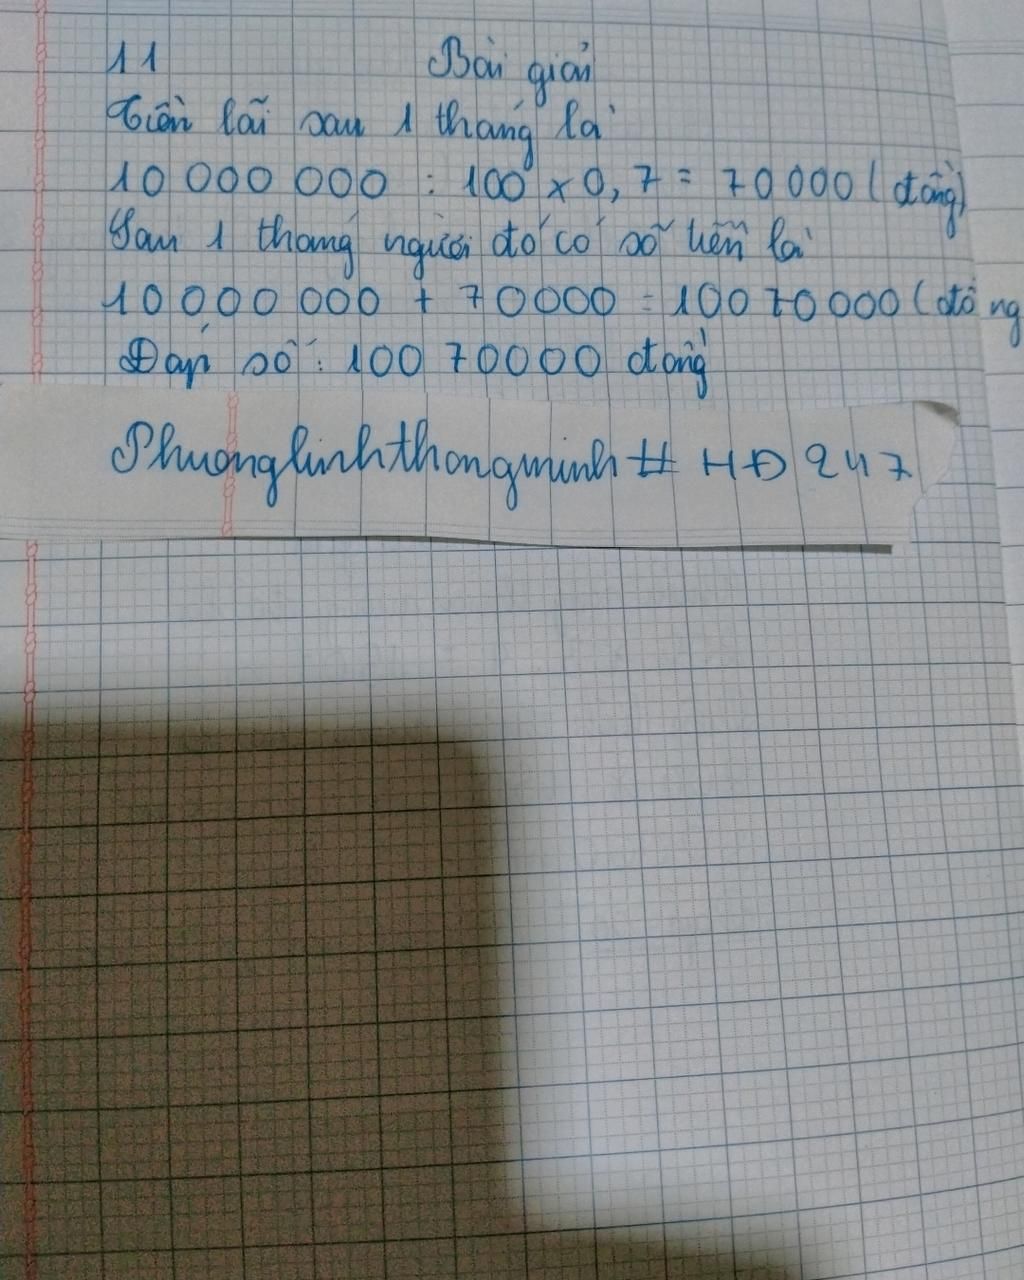 11 Bài giải
Tiền lãi sau 1 tháng là
10 000 000 : 100 x 0,7 = 70 000 (đồng)
Sau 1 tháng người đó có số tiền là
10 000 000 + 70000 = 100 70 000 (đồng
Đáp số : 100 70000 đồng
Phuonglinhthongminh # HĐ 247